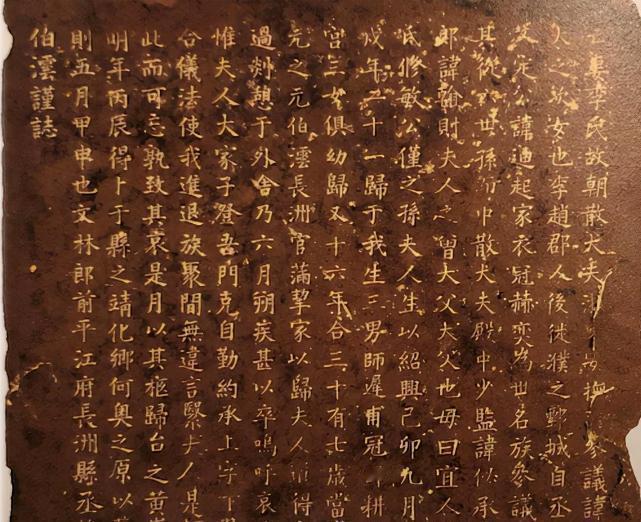 妻李氏故朝散大夫
久之次女也李趙郡人後徙濮之鄄城自丞
文定公諱迪起家衣冠赫奕為世名族參議
其從世孫中散大夫殿中少監諱似承
郎諱翰則夫人之曾大父大父也母曰宜人
氏修敏公僅之孫夫人生以紹興己卯九月
戌年二十一歸于我生三男師遲甫冠耕
宮三女俱幼歸又十六年合三十有七歲當
元之元伯澐長洲官滿挈家以歸夫人得
過剡憩于外舍乃六月朔疾甚以卒嗚呼哀
惟夫人大家子登吾門克自勤約承上字下
合儀法使我進退族聚間無違言繄夫人是
此而可忘孰致其哀是月以其柩歸台之黃
明年丙辰得卜于縣之靖化鄉何奧之原以
則五月甲申也文林郎前平江府長洲縣丞
伯澐謹誌